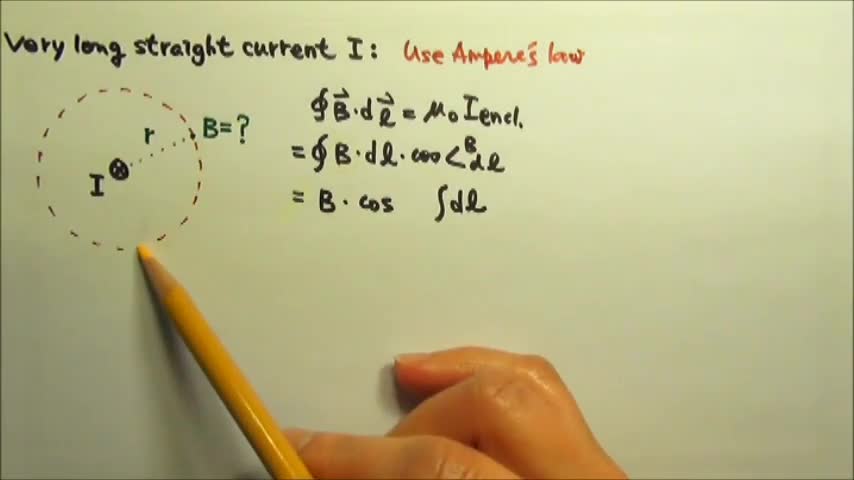 Very long straight current I: Use Ampere's law
r B=?
I
∮B⃗·dl⃗ = μ₀ Iencl.
= ∮ B·dl·cos<ᴮdl
= B·cos ∫dl